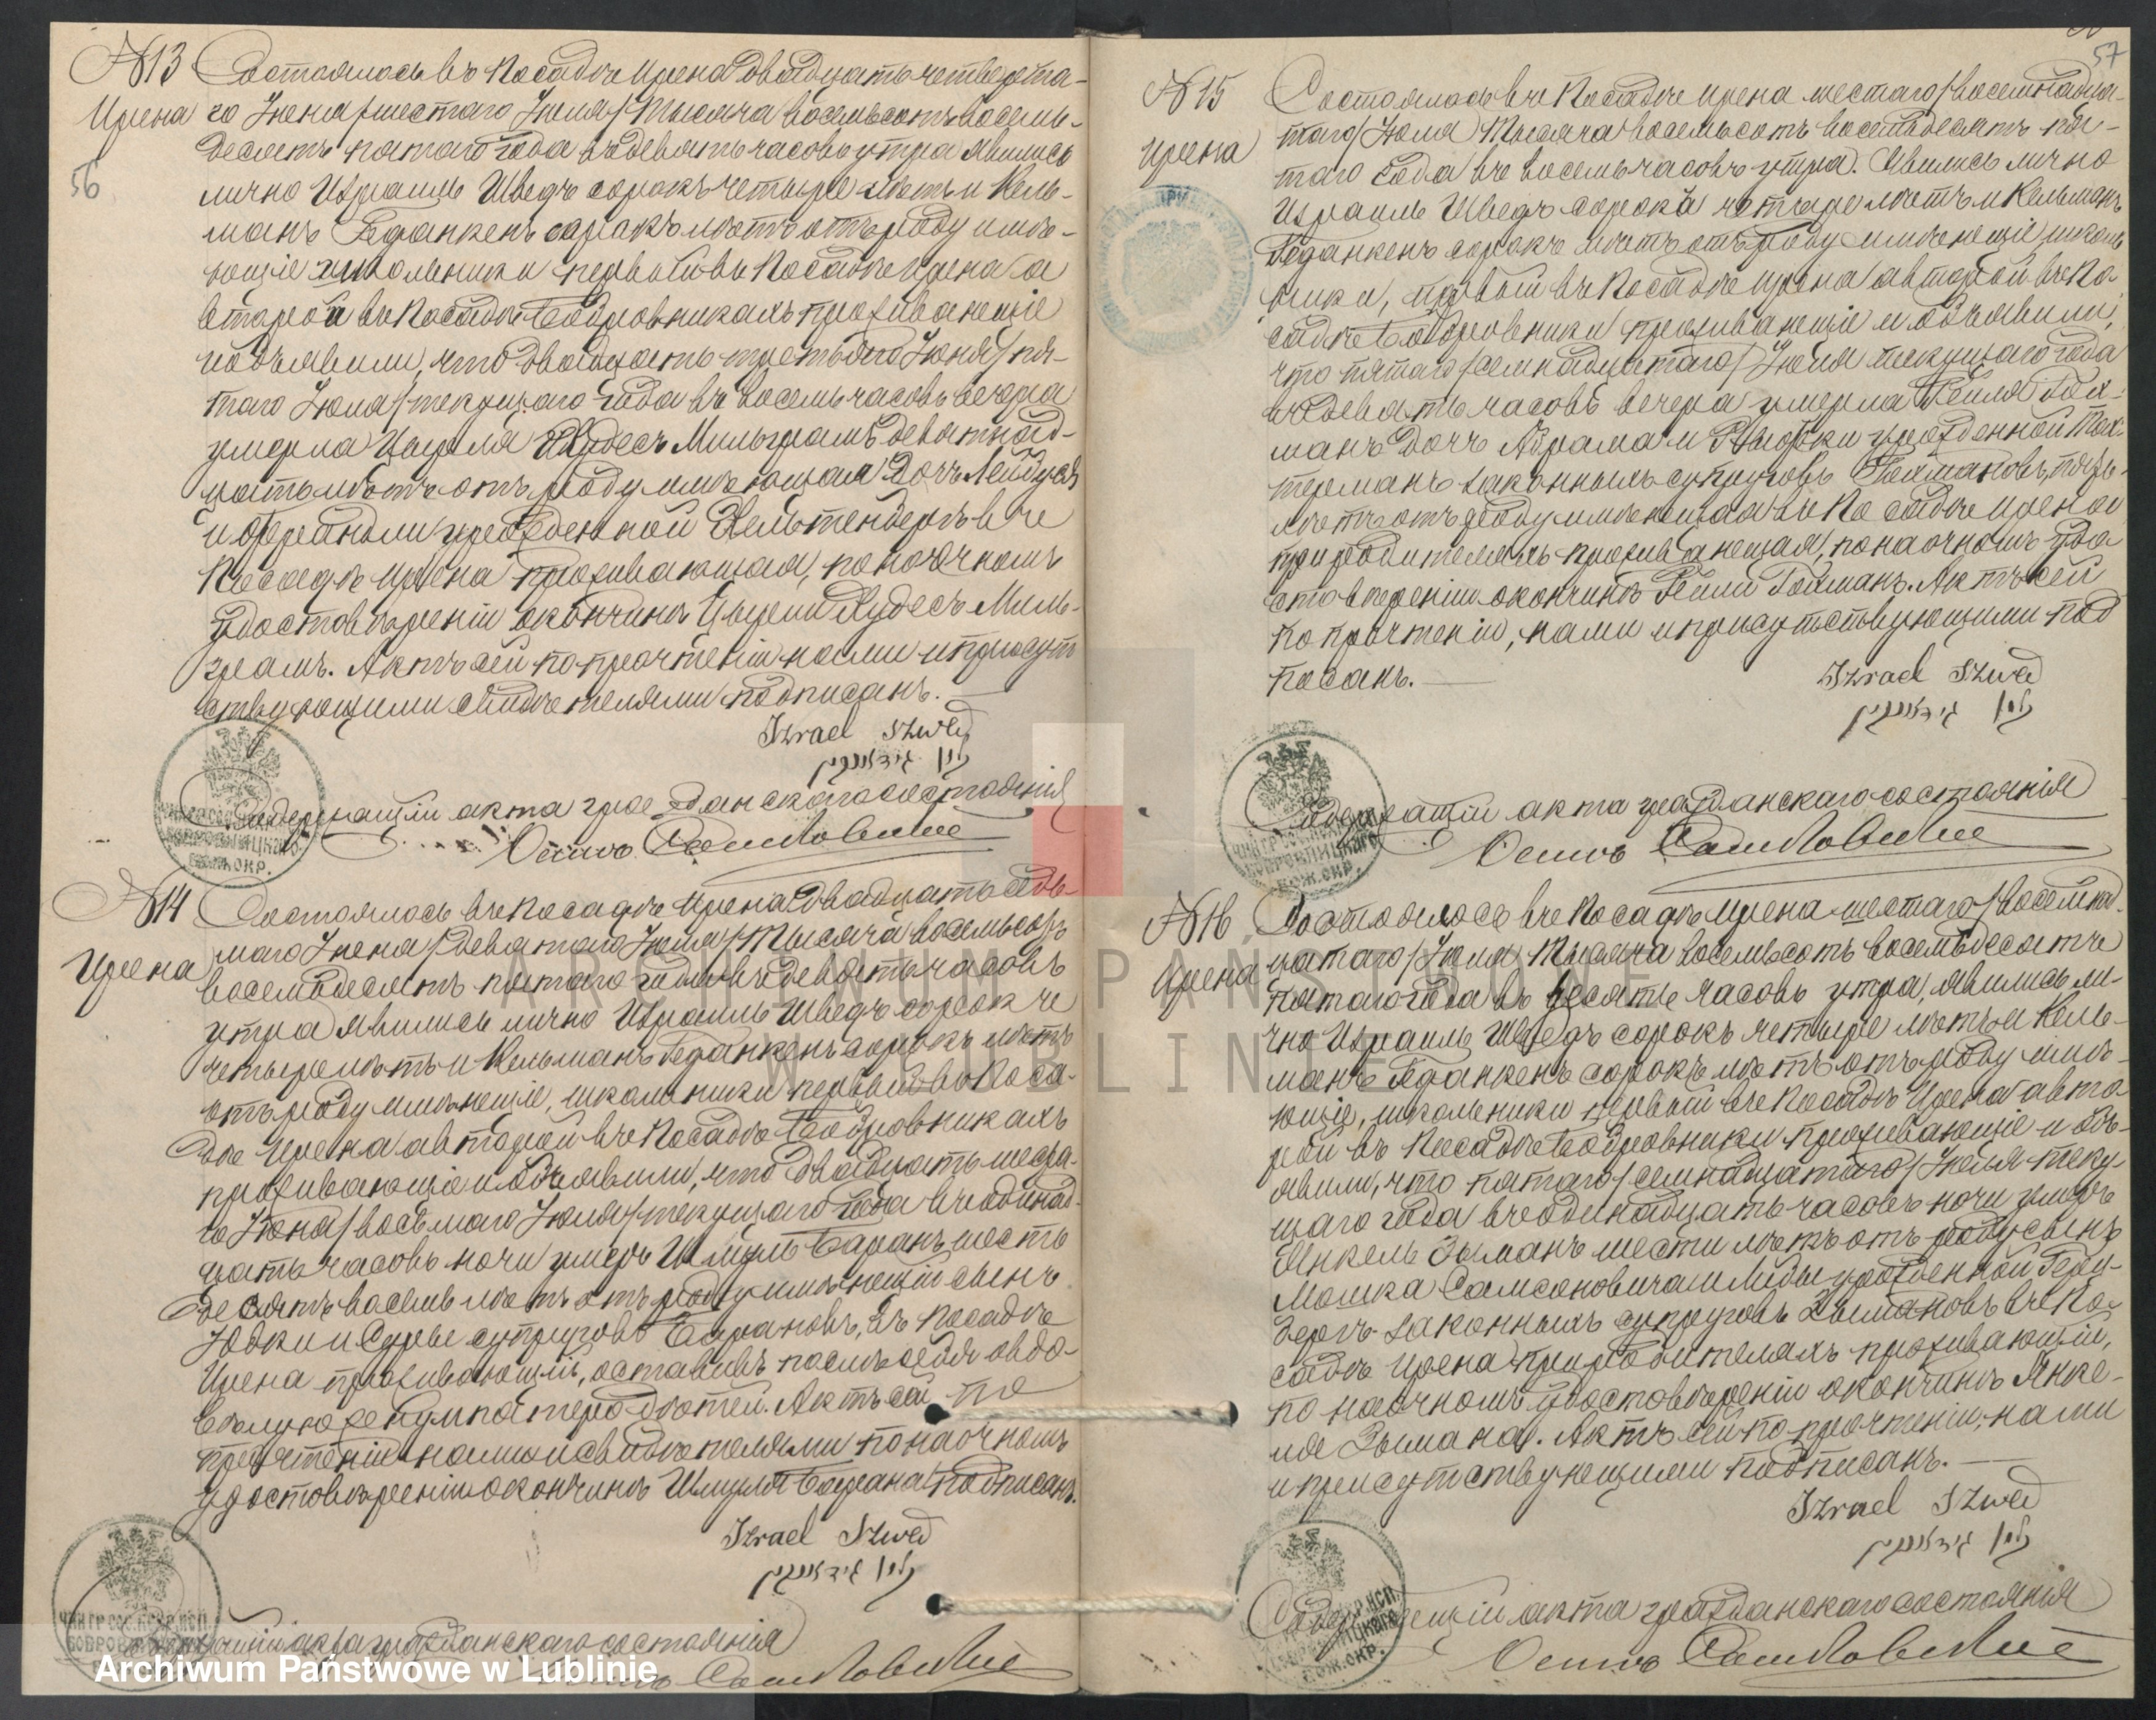 №13 Состоялось въ Посадѣ Ирена двадцать четверта-
Ирена го Іюня/шестаго Іюля/Тысяча восемьсотъ восемь-
десятъ пятаго года въ девять часовъ утра явились
56
лично Израиль Шведъ сорокъ четыре лѣтъ и Кель-
манъ Геданкенъ сорокъ лѣтъ отъ роду имѣ-
ющіе школьники первый въ Посадѣ Ирена а
второй въ Посадѣ Бобровникахъ проживающіе
и объявили, что двадцать третьяго Іюня/пя-
таго Іюля/текущаго года въ восемь часовъ вечера
умерла Цырля Мильграмъ девятнад-
цать лѣтъ отъ роду имѣющая дочь
и Фрейндли урожденной въ
Посадѣ Ирена проживающая, по наочномъ
удостовѣреніи окончины Цырли Миль-
грамъ. Актъ сей по прочтеніи нами и присут
ствующими свидѣтелями подписанъ.
Izrael Szwed
Содержащій акта гражданскаго состоянія
№14 Состоялось въ Посадѣ Ирена двадцать седь-
Ирена маго Іюня/девятаго Іюля/Тысяча восемьсотъ
восемьдесятъ пятаго года въ девять часовъ
утра явились лично Израиль Шведъ сорокъ
четыре лѣтъ и Кельманъ Геданкенъ сорокъ лѣтъ
отъ роду имѣющіе, школьники первый въ Поса-
дѣ Ирена а второй въ Посадѣ Бобровникахъ
проживающіе и объявили, что двадцать шеста-
го Іюня/восьмаго Іюля/текущаго года въ одинад-
цать часовъ ночи умеръ Шмуль Баранъ шесть
десятъ восемь лѣтъ отъ роду имѣющій сынъ
Юдки и Суры супруговъ Барановъ, въ Посадѣ
Ирена проживающій, оставивъ послѣ себя овдо-
вѣлую жену и дѣтей. Актъ сей по
прочтеніи нами и свидѣтелями по наочномъ
удостовѣреніи окончины Шмуля Барана подписанъ.
Izrael Szwed
акта гражданскаго состоянія
57
№15 Состоялось въ Посадѣ Ирена шестаго/восемнадца-
Ирена таго/Іюля Тысяча восемьсотъ восемьдесятъ пя-
таго года въ восемь часовъ утра. Явились лично
Израиль Шведъ сорокъ четыре лѣтъ и Кельманъ
Геданкенъ сорокъ лѣтъ отъ роду имѣющіе, школь
ники, первый въ Посадѣ Ирена а второй въ По-
садѣ Бобровники проживающіе и объявили,
что пятаго/семнадцатаго/Іюля текущаго года
въ девять часовъ вечера умерла Рейля Гой-
манъ дочь Абрама и урожденной
законныхъ супруговъ Гоймановъ,
лѣтъ отъ роду имѣющая въ Посадѣ Ирена
при родителяхъ проживающая, по наочномъ удо
стовѣреніи окончины Рейли Гойманъ. Актъ сей
по прочтеніи, нами и присутствующими под
писанъ.
Izrael Szwed
Содержащій акта гражданскаго состоянія
№16 Состоялось въ Посадѣ Ирена шестаго/восемнад-
Ирена цатаго/Іюля Тысяча восемьсотъ восемьдесятъ
пятаго года въ десять часовъ утра, явились ли-
чно Израиль Шведъ сорокъ четыре лѣтъ и Кель-
манъ Геданкенъ сорокъ лѣтъ отъ роду имѣ-
ющіе, школьники первый въ Посадѣ Ирена а вто-
рой въ Посадѣ Бобровники проживающіе и объ-
явили, что пятаго/семнадцатаго/Іюля теку-
щаго года въ одинадцать часовъ ночи умеръ
Янкель Зыманъ шести лѣтъ отъ роду сынъ
Мошка Самсоновича и урожденной
законныхъ супруговъ Зымановъ въ По-
садѣ Ирена при родителяхъ проживающій,
по наочномъ удостовѣреніи окончины Янке-
ля Зымана. Актъ сей по прочтеніи, нами
и присутствующими подписанъ.
Izrael Szwed
Содержащій акта гражданскаго состоянія
ARCHIWUM PAŃSTWOWE
W LUBLINIE
Archiwum Państwowe w Lublinie